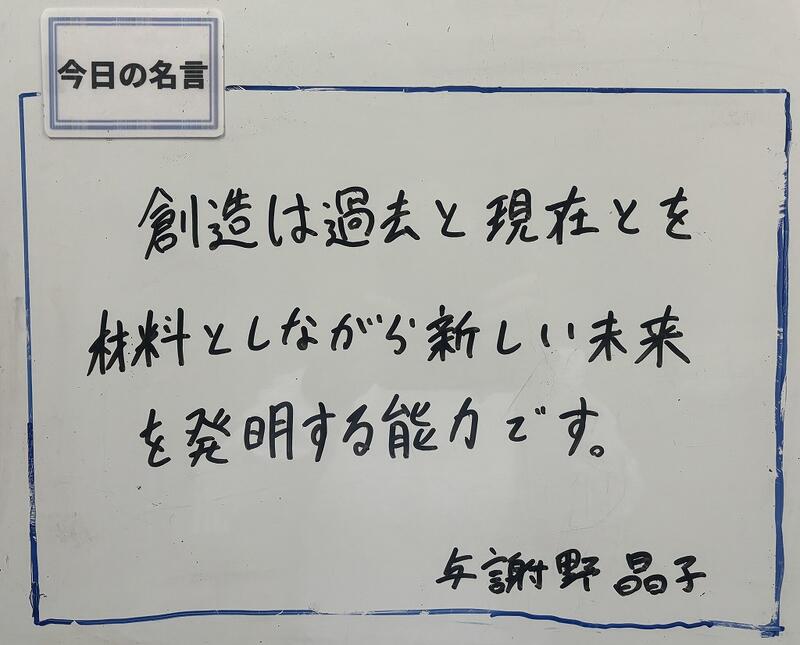 今日の名言
創造は過去と現在とを
材料としながら新しい未来
を発明する能力です。
与謝野晶子